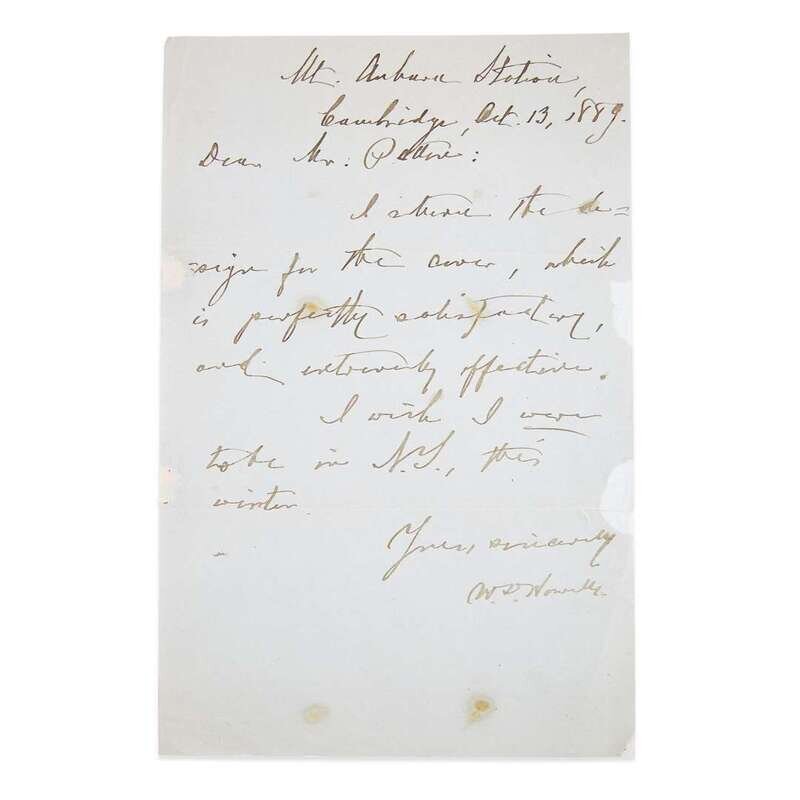 Mt. Auburn Station,
Cambridge, Oct. 13, 1889.
Dear Mr. Patten:
I return the de=
sign for the cover, which
is perfectly satisfactory,
and extremely effective.
I wish I were
to be in N.Y., this
winter.
Yours sincerely
W.D. Howells.